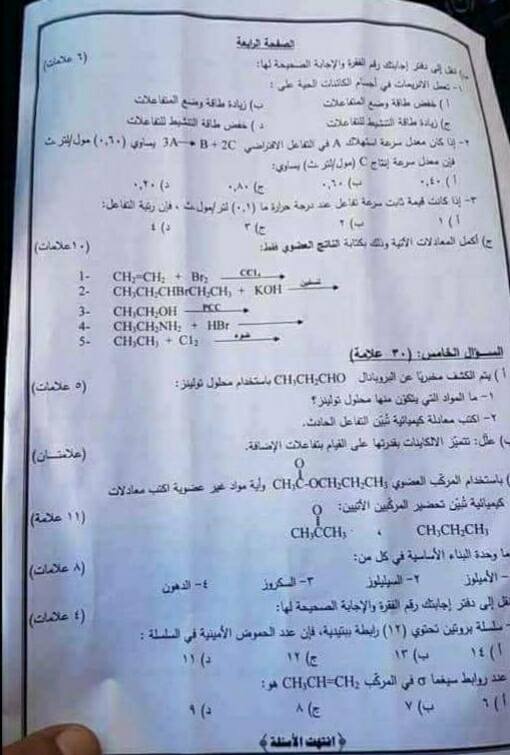 الصفحة الرابعة
انقل إلى دفتر إجابتك رقم الفقرة والإجابة الصحيحة لها: (٦ علامات)
١- تعمل الانزيمات في أجسام الكائنات الحية على :
أ ) خفض طاقة وضع المتفاعلات ب) زيادة طاقة وضع المتفاعلات
ج) زيادة طاقة التنشيط للتفاعلات د ) خفض طاقة التنشيط للتفاعلات
٢- إذا كان معدل سرعة استهلاك A في التفاعل الافتراضي 3A → B + 2C يساوي (٠,٦٠) مول/لتر.ث
فإن معدل سرعة إنتاج C (مول/لتر.ث) يساوي:
أ ) ٠,٤٠ ب) ٠,٦٠ ج) ٠,٨٠ د) ٠,٢٠
٣- إذا كانت قيمة ثابت سرعة تفاعل عند درجة حرارة ما (٠,١) لتر/مول.ث ، فإن رتبة التفاعل:
أ ) ١ ب) ٢ ج) ٣ د) ٤
ج) أكمل المعادلات الآتية وذلك بكتابة الناتج العضوي فقط: (١٠ علامات)
1- CH₂=CH₂ + Br₂ —CCl₄→
2- CH₃CH₂CHBrCH₂CH₃ + KOH —تسخين→
3- CH₃CH₂OH —PCC→
4- CH₃CH₂NH₂ + HBr →
5- CH₃CH₃ + Cl₂ —ضوء→
الســؤال الخامس: (٣٠ علامة)
أ ) يتم الكشف مخبريًا عن البروبانال CH₃CH₂CHO باستخدام محلول تولينز: (٥ علامات)
١- ما المواد التي يتكوّن منها محلول تولينز؟
٢- اكتب معادلة كيميائية تُبيّن التفاعل الحادث.
ب) علّل: تتميّز الألكينات بقدرتها على القيام بتفاعلات الإضافة. (علامتــان)
) باستخدام المركّب العضوي CH₃C(=O)-OCH₂CH₂CH₃ وأية مواد غير عضوية اكتب معادلات
كيميائية تُبيّن تحضير المركّبين الآتيين: (١١ علامة)
CH₃CH₂CH₃ ، CH₃C(=O)CH₃
ما وحدة البناء الأساسية في كل من: (٨ علامات)
- الأميلوز ٢- السيليلوز ٣- السكروز ٤- الدهون
نقل إلى دفتر إجابتك رقم الفقرة والإجابة الصحيحة لها: (٤ علامات)
- سلسلة بروتين تحتوي (١٢) رابطة ببتيدية، فإن عدد الحموض الأمينية في السلسلة :
أ ) ١٤ ب) ١٣ ج) ١٢ د) ١١
عدد روابط سيغما σ في المركّب CH₃CH=CH₂ هو:
أ ) ٦ ب) ٧ ج) ٨ د) ٩
﴿ انتهت الأسئلة ﴾